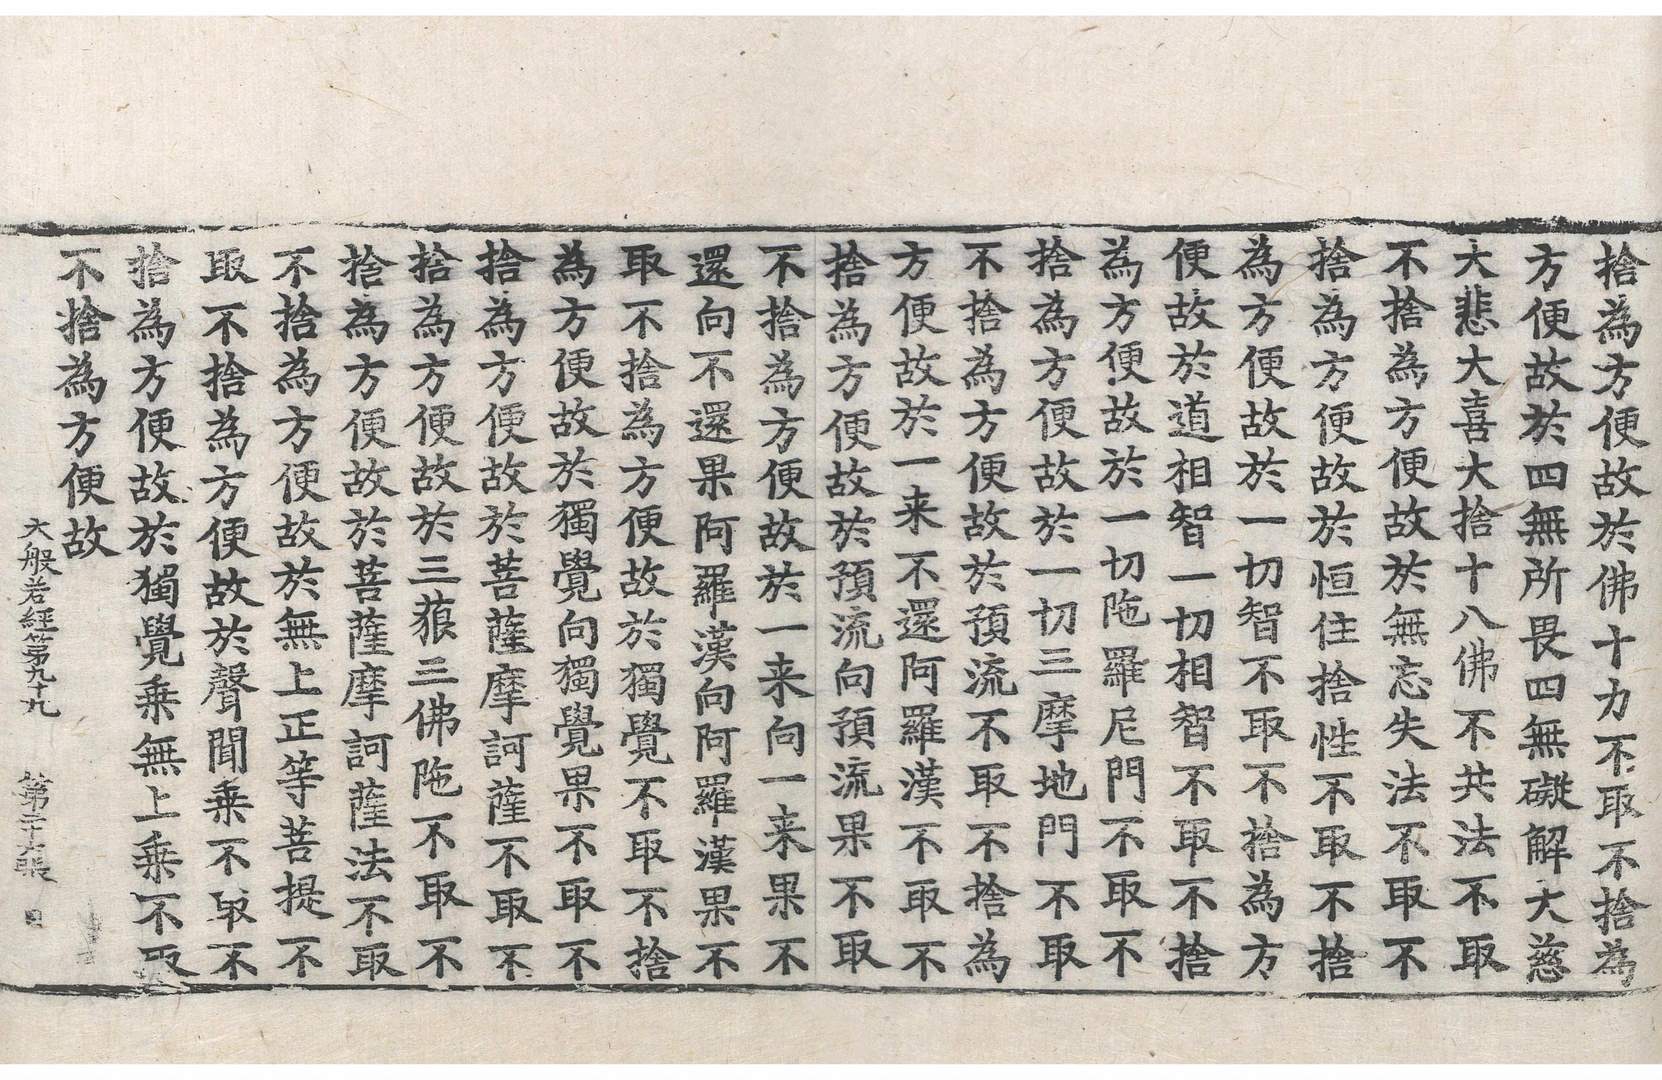 捨為方便故於佛十力不取不捨為
方便故於四無所畏四無礙解大慈
大悲大喜大捨十八佛不共法不取
不捨為方便故於無忘失法不取不
捨為方便故於恒住捨性不取不捨
為方便故於一切智不取不捨為方
便故於道相智一切相智不取不捨
為方便故於一切陁羅尼門不取不
捨為方便故於一切三摩地門不取
不捨為方便故於預流不取不捨為
方便故於一来不還阿羅漢不取不
捨為方便故於預流向預流果不取
不捨為方便故於一来向一来果不
還向不還果阿羅漢向阿羅漢果不
取不捨為方便故於獨覺不取不捨
為方便故於獨覺向獨覺果不取不
捨為方便故於菩薩摩訶薩不取不
捨為方便故於三藐三佛陁不取不
捨為方便故於菩薩摩訶薩法不取
不捨為方便故於無上正等菩提不
取不捨為方便故於聲聞乗不取不
捨為方便故於獨覺乗無上乗不取
不捨為方便故
大般若經第九十九 第二十六張